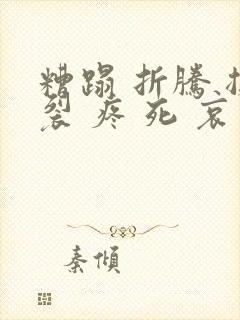 糟蹋 折騰
裂 疼 死 哀
秦傾